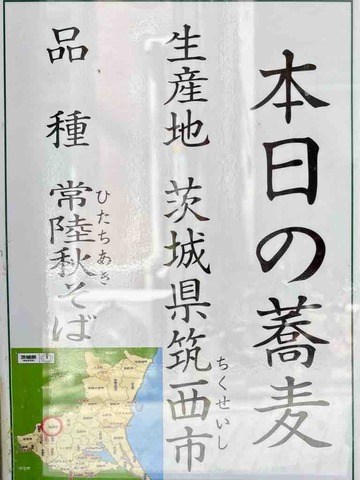 本日の蕎麦
生産地 茨城県筑西市
ちくせいし
品種 常陸秋そば
ひたちあき
茨城県